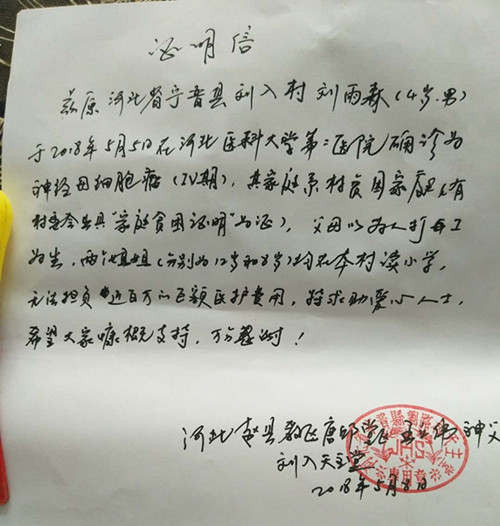 证明信
兹原河北省宁晋县刘入村刘雨森(4岁.男)
于2018年5月5日在河北医科大学第二医院确诊为
神经母细胞瘤(IV期),其家庭系村贫困家庭(有
村委会出具"家庭贫困证明"为证),父母以为人打工
为生,两个姐姐(分别为12岁和8岁)均在本村读小学,
无法担负近百万的巨额医护费用,特求助爱心人士,
希望大家慷概支持,万分感谢!
河北赵县教区唐邱堂区 神父
刘入天主堂
2018年5月8日